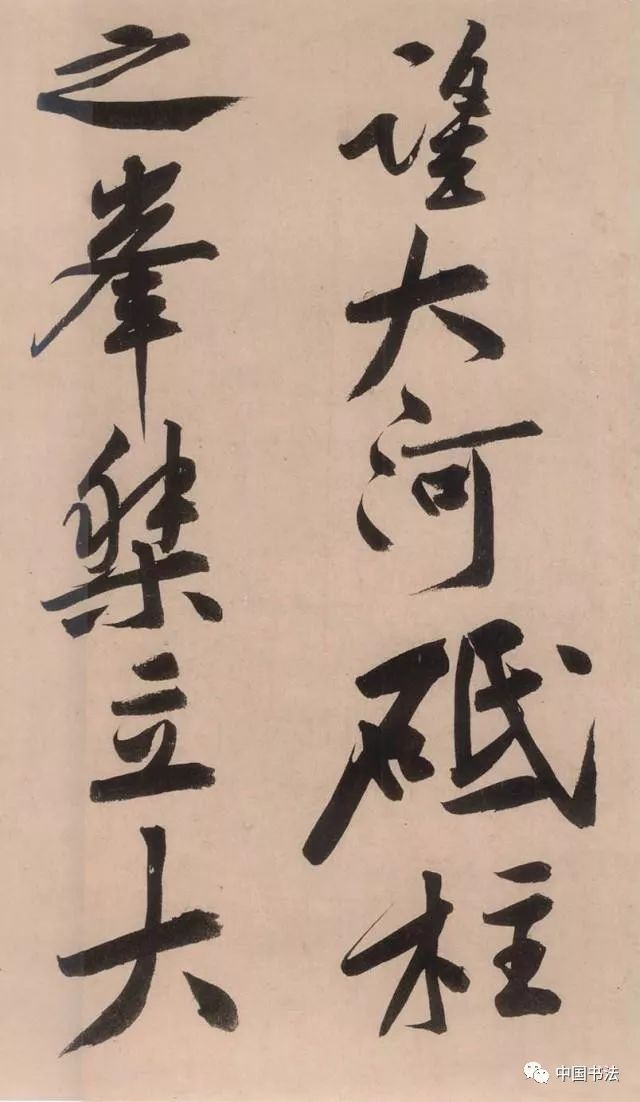 望大河砥柱
之峯桀立大
中国书法